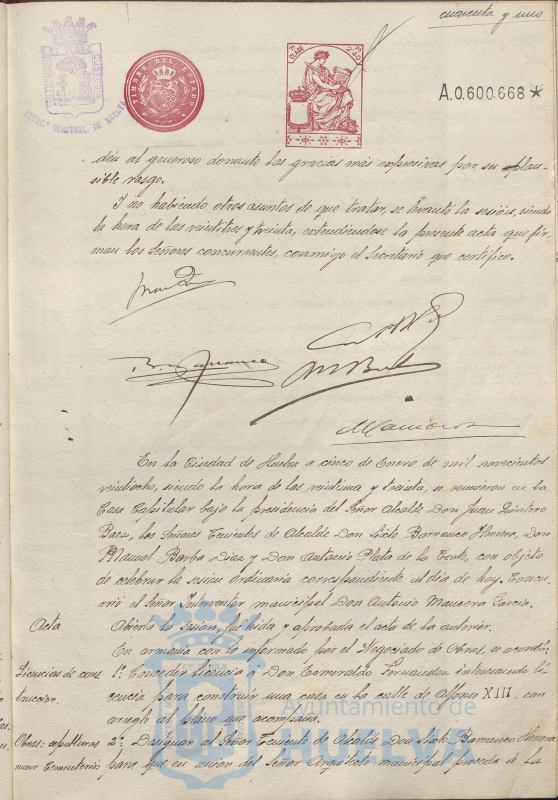 cuarenta y uno
TIMBRE DEL ESTADO
A.0.600.668*
dén al generoso donante las gracias más expresivas por su plau-
sible rasgo.
Y no habiendo otros asuntos de que tratar, se levantó la sesión, siendo
la hora de las veintitres y treinta, extendiendose la presente acta que fir-
man los Señores concurrentes, conmigo el Secretario que certifico.
En la Ciudad de Huelva a cinco de Enero de mil novecientos
veintiocho, siendo la hora de las veintiuna y treinta, se reunieron en la
Casa Capitular bajo la presidencia del Señor Alcalde Don Juan Quintero
Baez, los Señores Tenientes de Alcalde Don Sixto Barranco Herrera, Don
Manuel Barba Diaz y Don Antonio Plata de la Corte, con objeto
de celebrar la sesión ordinaria correspondiente al dia de hoy. Concu-
rrió el Señor Interventor municipal Don Antonio Mancera Garcia.
Acta Abierta la sesión, fue leida y aprobada el acta de la anterior.
En armonia con lo informado por el Negociado de Obras, se acordó:
Licencias de cons 1º: Conceder licencia a Don Esmeraldo Fernandez interesando li
trucción. cencia para construir una casa en la calle de Alfonso XIII, con
arreglo al plano que acompaña.
Obras: sepulturas 2º: Designar al Señor Teniente de Alcalde Don Sixto Barranco Herrera
nuevo Cementerio: para que en unión del Señor Arquitecto municipal proceda a la
Ayuntamiento de
HUELVA